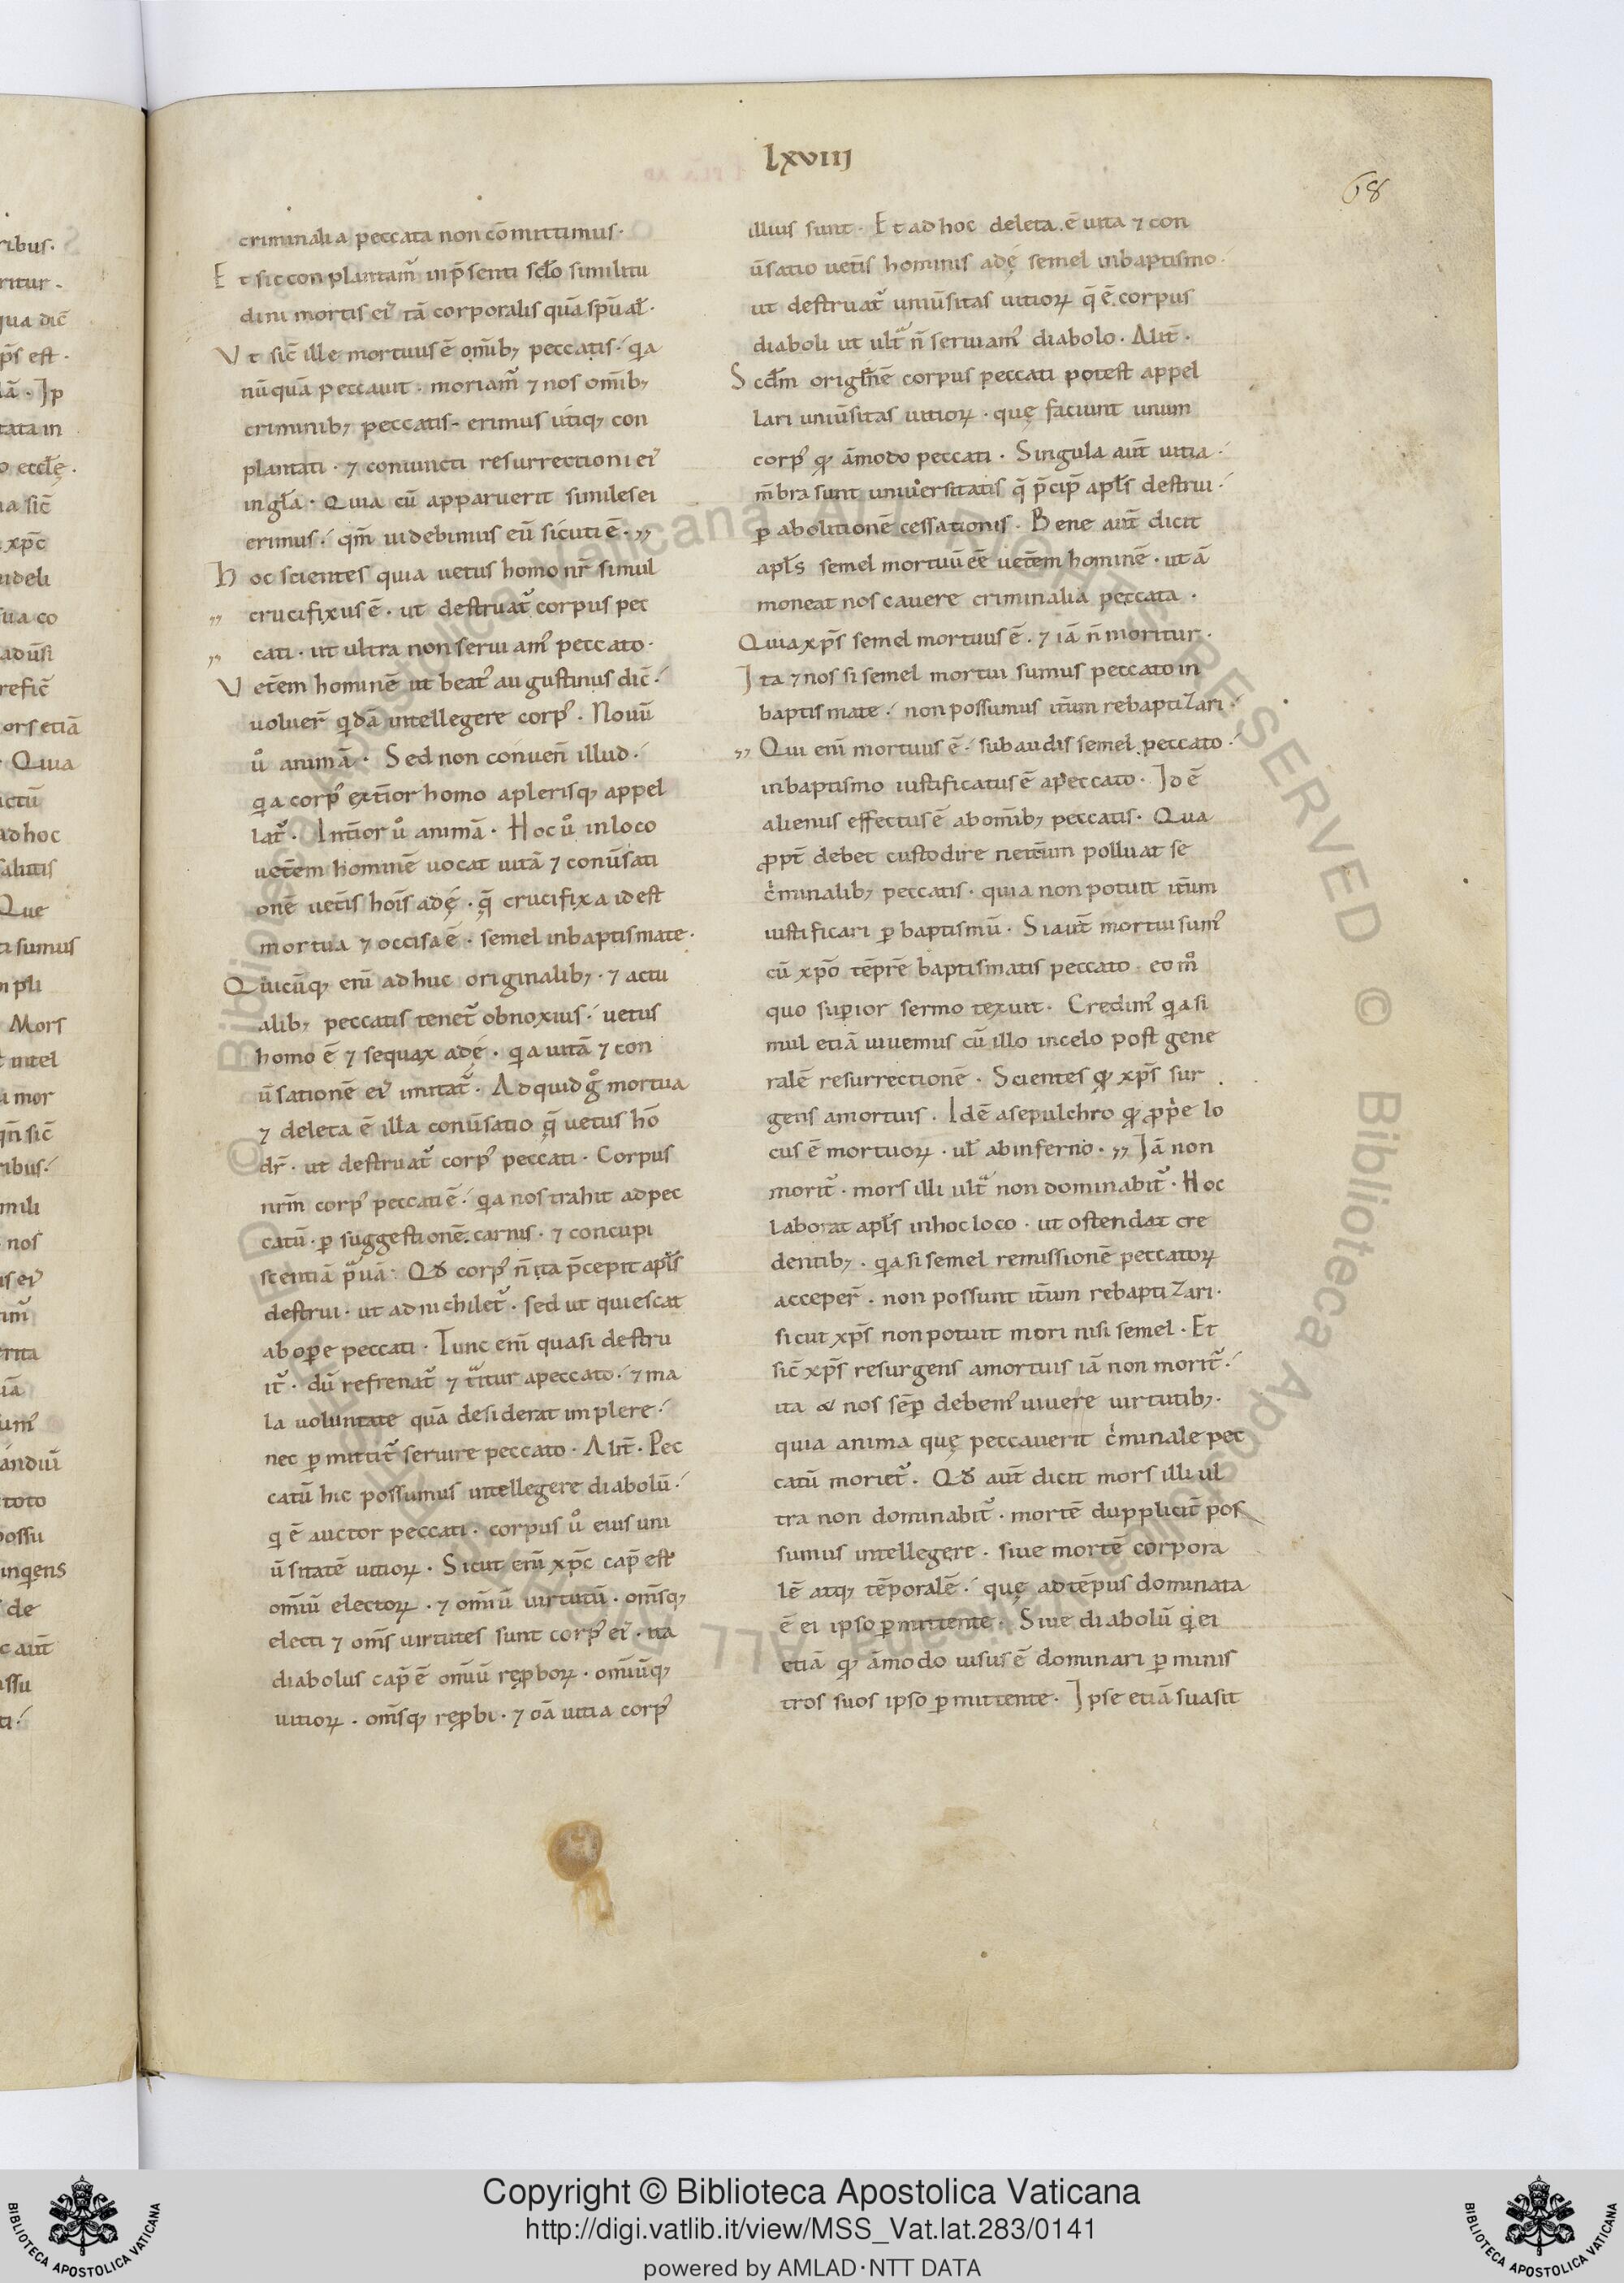 lxviii
68
criminalia peccata non cōmittimus·
Et sic conplantam᷑ in p̄senti scl̄o similitu
dini mortis ei᷒ tā corporalis quā sp̄ual̄·
Vt sic̄ ille mortuus ē om̄ib; peccatis· qa
nūquā peccauit· moriam᷑ ⁊ nos om̄ib;
criminib; peccatis· erimus utiq; con
plantati· ⁊ coniuncti resurrectioni ei᷒
in gl̄a· Quia cū apparuerit similes ei
erimus· qm̄ uidebimus eū sicuti ē· ,,
Hoc scientes quia uetus homo nr̄ simul
,, crucifixus ē· ut destruat᷑ corpus pec
,, cati· ut ultra non seruiam᷒ peccato·
Vet̄em hominē ut beat᷒ augustinus dic̄·
uoluer̄ qdā intellegere corp᷒· Nouū
uͦ animā· Sed non conuen̄ illud·
qa corp᷒ ext̄ior homo a plerisq; appel
lat᷑· Int̄ior uͦ animā· Hoc uͦ in loco
uet̄em hominē uocat uitā ⁊ conūsati
onē uet̄is hoīs adę· q̄ crucifixa id est
mortua ⁊ occisa ē· semel in baptismate·
Quicūq; enī adhuc originalib;· ⁊ actu
alib; peccatis tenet᷑ obnoxius· uetus
homo ē ⁊ sequax adę· qa uitā ⁊ con
ūsationē ei᷒ imitat᷑· Ad quid gͦ mortua
⁊ deleta ē illa conūsatio q̄ uetus hō
dr̄· ut destruat᷑ corp᷒ peccati· Corpus
nrm̄ corp᷒ peccati ē· qa nos trahit ad pec
catū· ꝑ suggestionē carnis· ⁊ concupi
scentiā pᵃuā· Qđ corp᷒ n̄ ita p̄cepit apl̄s
destrui· ut adnichilet᷑· sed ut quiescat
ab oꝑe peccati· Tunc enī quasi destru
it᷑· dū refrenat᷑ ⁊ tᵃitur a peccato· ⁊ ma
la uoluntate quā desiderat implere·
nec ꝑmittit᷑ seruire peccato· Alit̄· Pec
catū hic possumus intellegere diabolū·
q ē auctor peccati· corpus uͦ eius uni
ūsitatē uitioꝝ· Sicut enī xp̄c cap̄ est
omīū electoꝝ· ⁊ omīū uirtutū· om̄sq;
electi ⁊ om̄s uirtutes sunt corp᷒ ei᷒· ita
diabolus cap̄ ē omīū reꝓboꝝ· omīūq;
uitioꝝ· om̄sq; reꝓbi· ⁊ oā uitia corp᷒
illius sunt· Et ad hoc deleta ē uita ⁊ con
ūsatio uet̄is hominis adę semel in baptismo·
ut destruat᷑ uniūsitas uitioꝝ q̄ ē corpus
diaboli ut ultᵃ n̄ seruiam᷒ diabolo· Alit̄·
Scd̄m origēnē corpus peccati potest appel
lari uniūsitas uitioꝝ· quę faciunt unum
corp᷒ qͦdāmodo peccati· Singula aut̄ uitia·
m̄bra sunt uniuersitatis q̄ p̄cip̄ apl̄s destrui·
ꝑ abolitionē cessationis· Bene aut̄ dicit
apl̄s semel mortuū eē uet̄em hominē· ut ā
moneat nos cauere criminalia peccata·
Quia xp̄s semel mortuus ē· ⁊ iā n̄ moritur·
Ita ⁊ nos si semel mortui sumus peccato in
baptismate· non possumus it̄um rebaptizari·
,, Qui enī mortuus ē· subaudis semel peccato·
in baptismo iustificatus ē a peccato· Id ē
alienus effectus ē ab om̄ib; peccatis· Qua
ꝓpt̄ debet custodire ne it̄um polluat se
cͥminalib; peccatis· quia non potuit it̄um
iustificari ꝑ baptismū· Si aut̄ mortui sum᷒
cū xp̄o tēpr̄e baptismatis peccato· eo mͦ
quo suꝑior sermo texuit· Credim᷒ qa si
mul etiā uiuemus cū illo in celo post gene
ralē resurrectionē· Scientes qđ xp̄s sur
gens a mortuis· Id ē a sepulchro qđ ꝓpͥe lo
cus ē mortuoꝝ· ul̄ ab inferno· ,, Iā non
morit᷑· mors illi ultᵃ non dominabit᷑· Hoc
laborat apl̄s in hoc loco· ut ostendat cre
dentib;· qa si semel remissionē peccatoꝝ
acceper̄· non possunt it̄um rebaptizari·
sicut xp̄s non potuit mori nisi semel· Et
sic̄ xp̄s resurgens a mortuis iā non morit᷑·
ita & nos sēꝑ debem᷒ uiuere uirtutib;·
quia anima quę peccauerit cͥminale pec
catū moriet᷑· Qđ aut̄ dicit mors illi ul
tra non dominabit᷑· mortē dupplicit̄ pos
sumus intellegere· siue mortē corpora
lē atq; tēporalē· quę ad tēpus dominata
ē ei ipso ꝑmittente· Siue diabolū q ei
etiā qͦdāmodo uisus ē dominari ꝑ minis
tros suos ipso ꝑmittente· Ipse etiā suasit
Copyright © Biblioteca Apostolica Vaticana
http://digi.vatlib.it/view/MSS_Vat.lat.283/0141
powered by AMLAD·NTT DATA